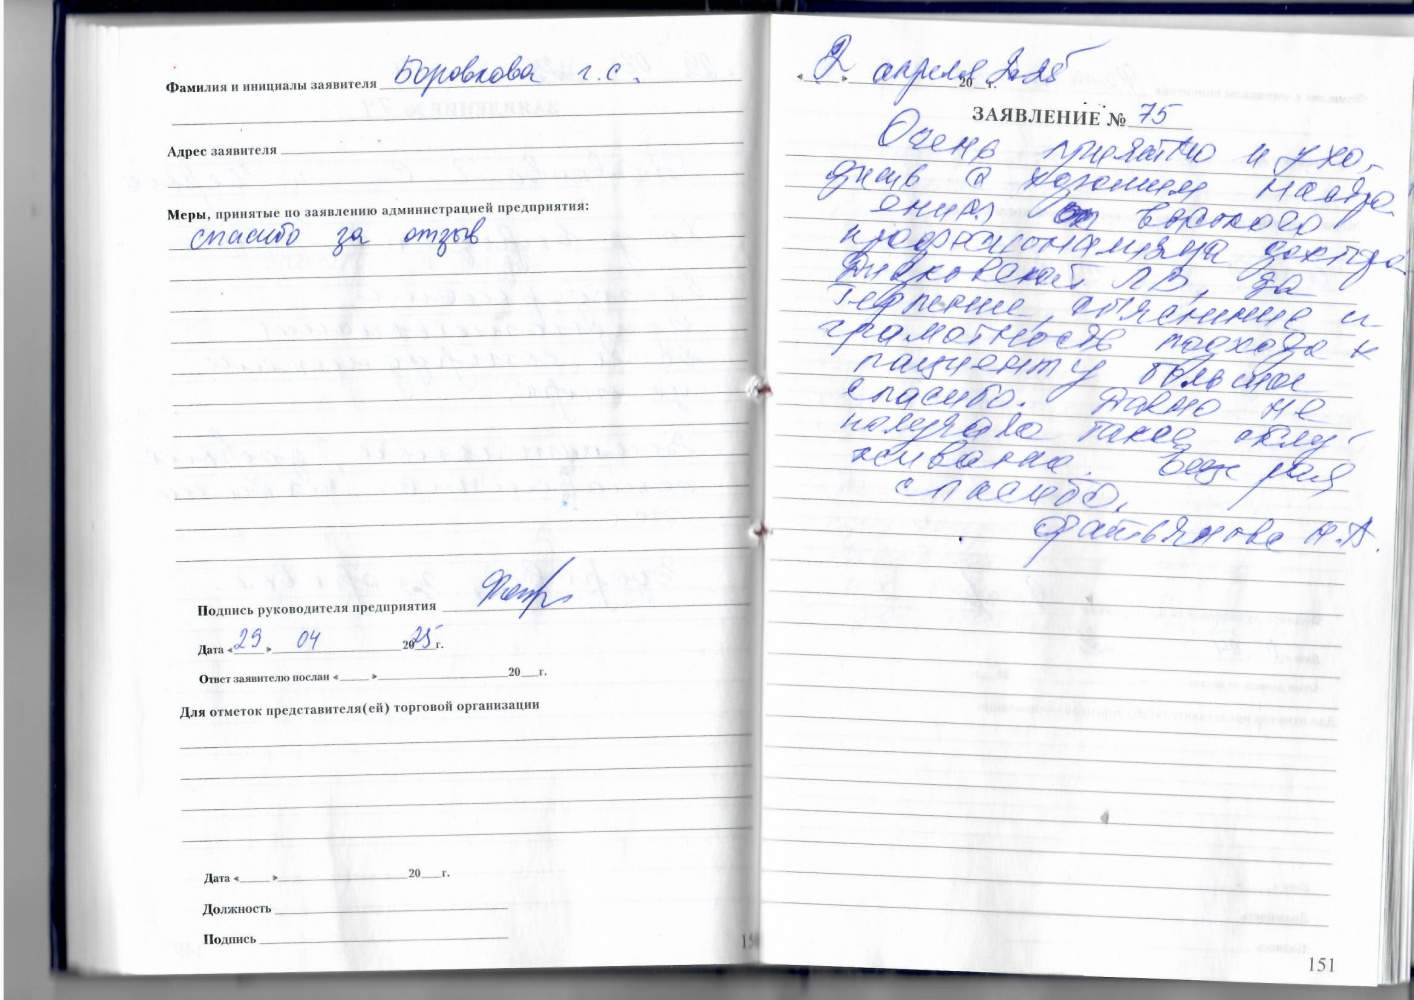 Фамилия и инициалы заявителя Боровкова Г.С.
Адрес заявителя
Меры, принятые по заявлению администрацией предприятия:
спасибо за отзыв
Подпись руководителя предприятия
Дата «29» 04 2025 г.
Ответ заявителю послан « » 20 г.
Для отметок представителя(ей) торговой организации
Дата « » 20 г.
Должность
Подпись
«2» апреля 2025 20 г.
ЗАЯВЛЕНИЕ № 75
Очень приятно и ухо-
дишь с хорошим настро
ением от высокого
профессионализма доктора
Л.В, за
терпение, объяснение и
грамотность подхода к
пациенту большое
спасибо. Давно не
получала такое обслу-
живание. Еще раз
спасибо.
Фатьянова Н.А.
151